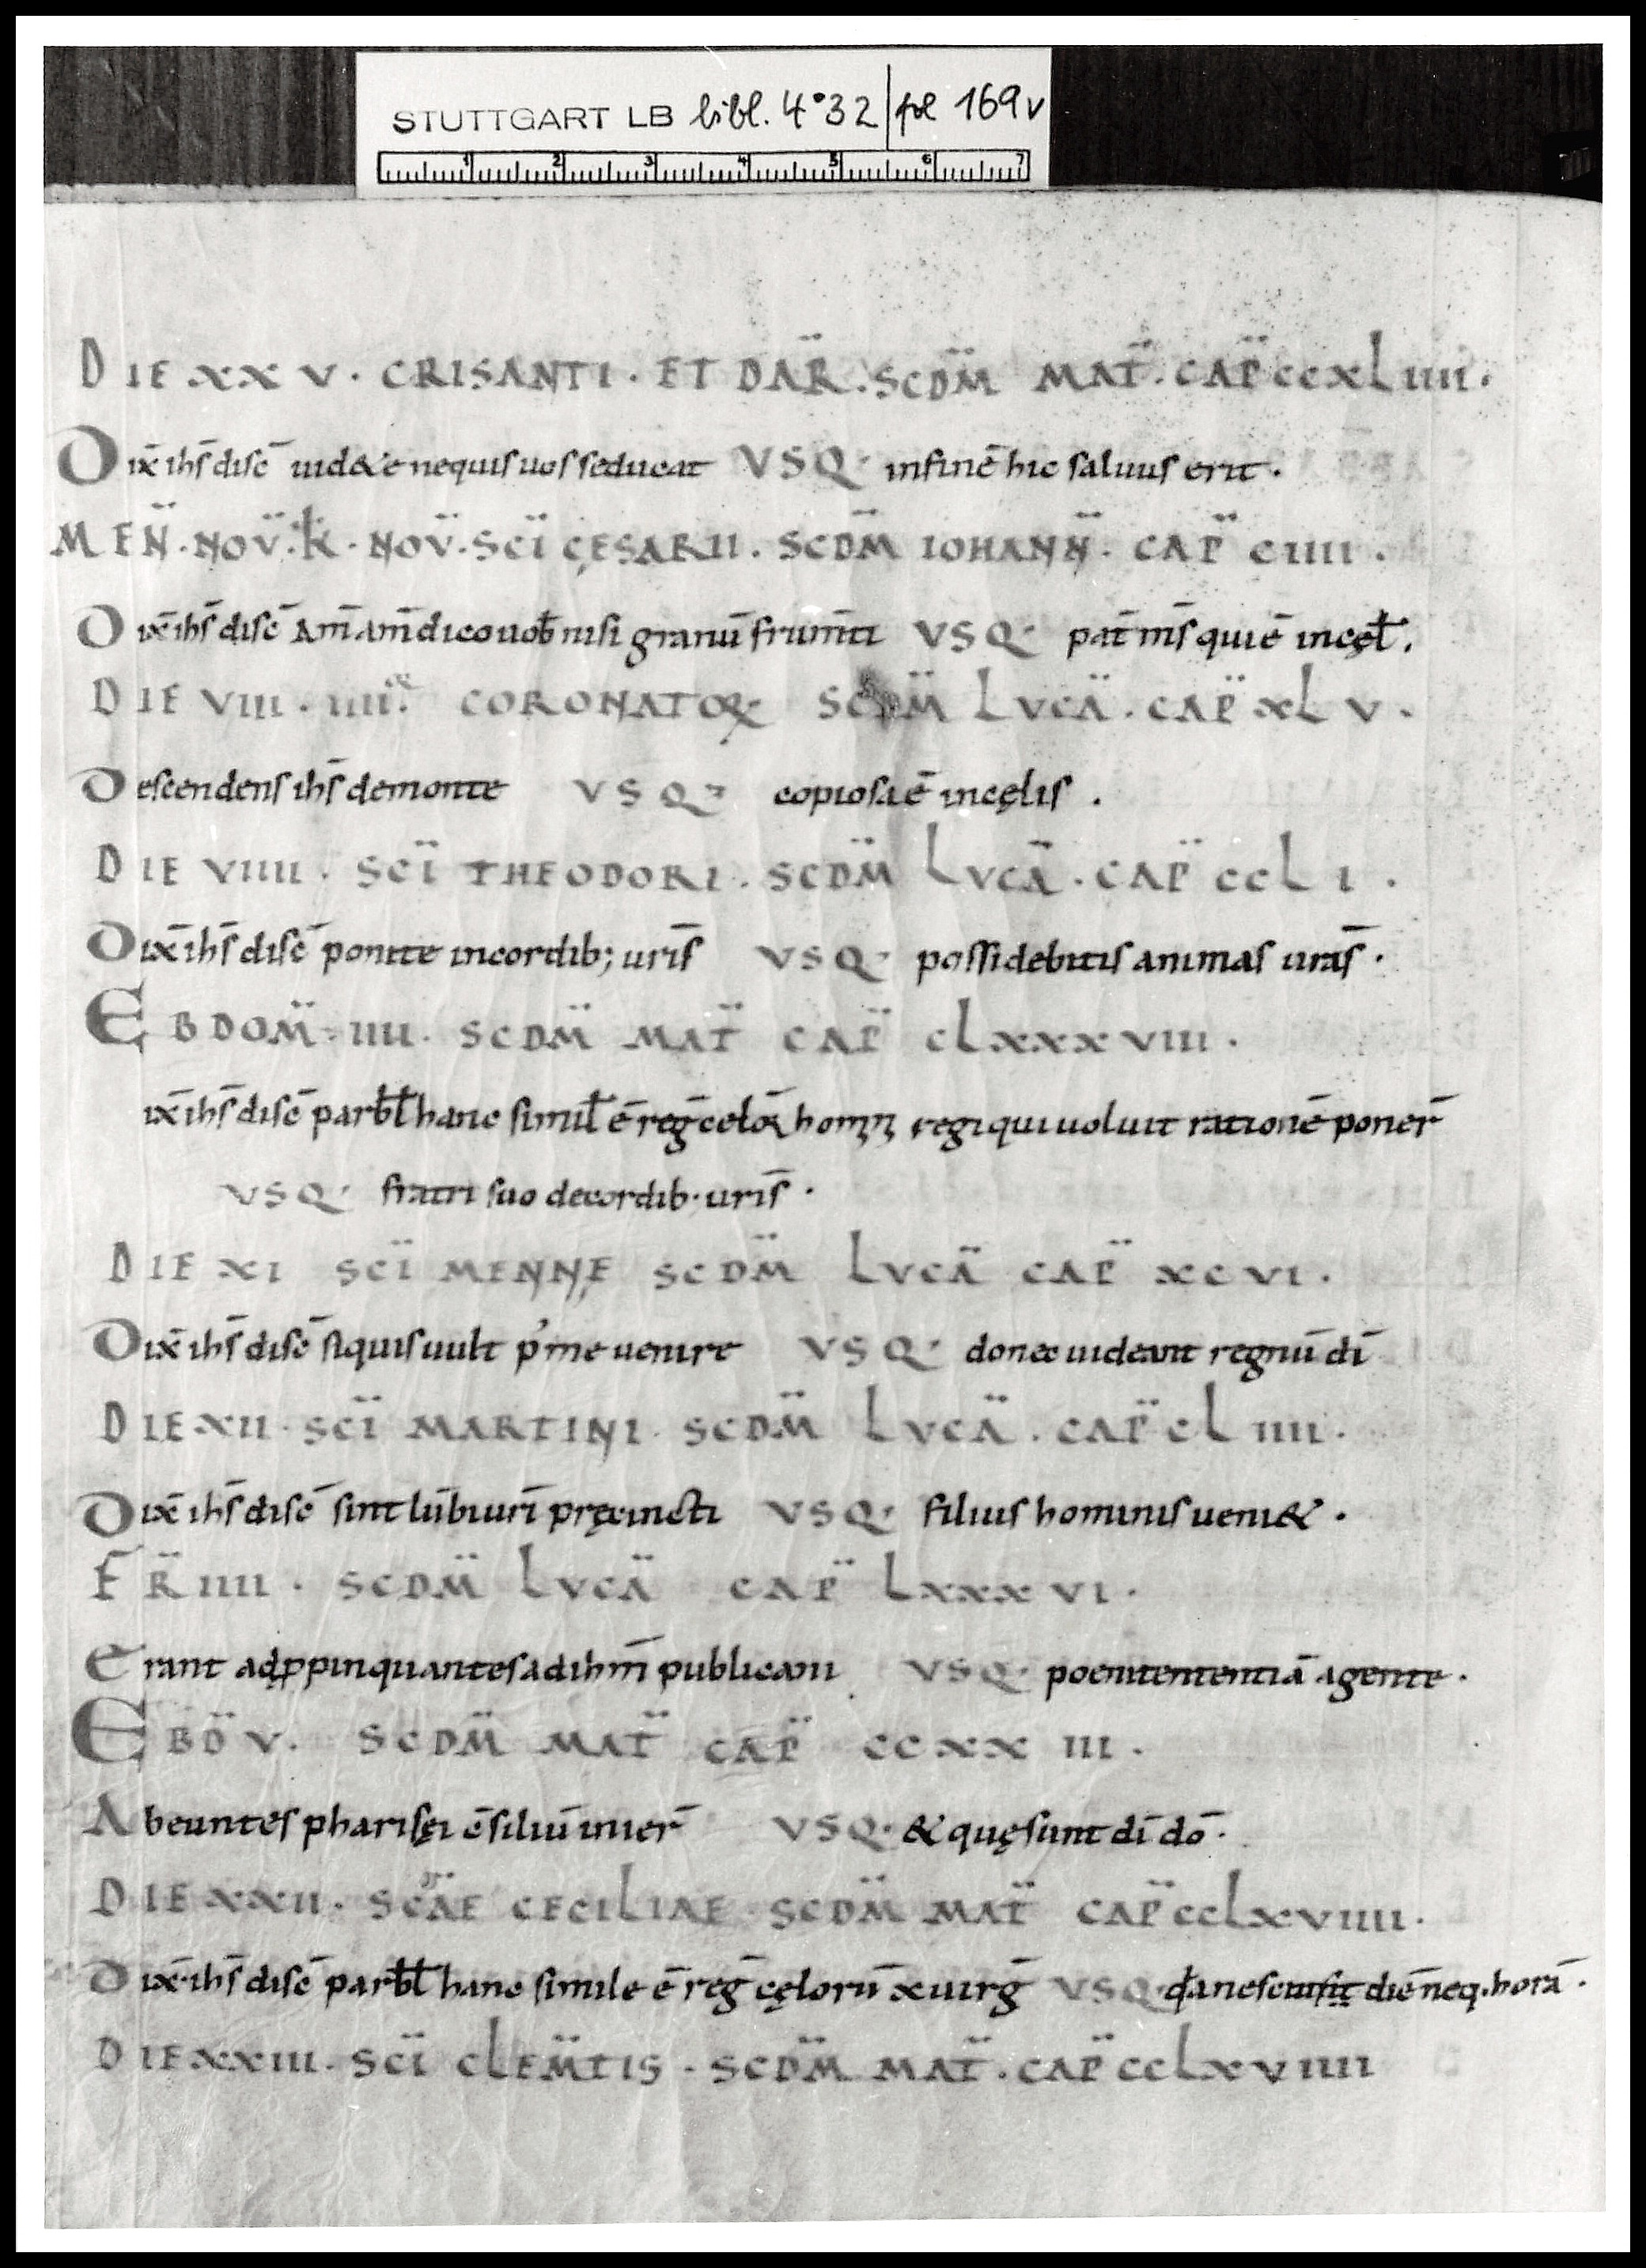 STUTTGART LB bibl. 4° 32 fol 169v
1 2 3 4 5 6 7
DIE XXV · CRISANTI · ET DAR̈ · SCDM̈ MAT̈ · CAP̈ CCXLIIII ·
Dix̄ ih̄s disc̄ uid&e nequis uos seducat VSQ· infinē hic saluus erit ·
MEN̈ · NOV̈ · K̄ · NOV̈ · SCÏ CĘSARII · SCDM̈ IOHANN̈ · CAP̈ CIIII ·
Dix̄ ih̄s disc̄ Am̄ am̄ dico uob̄ nisi granū frum̄ti VSQ· pat̄ ms̄ qui ē incęl̄ .
DIE VIII · IIII · CORONATOꝜ SCDM̈ LVCÄ · CAP̈ XLV ·
Descendens ih̄s demonte VSQ· copiosa ē incęlis .
DIE VIIII · SCÏ THEODORI · SCDM̈ LVCÄ · CAP̈ CCLI ·
Dix̄ ih̄s disc̄ ponite incordib; uris̄ VSQ· possidebitis animas uras̄ ·
EBDOM̈ · IIII · SCDM̈ MAT̈ CAP̈ CLXXXVIII ·
ix̄ ih̄s disc̄ parb̄l̄ hanc simil̄ ē reḡ celoꝝ regi qui uoluit rationē poner̄
VSQ· fratri suo decordib· uris̄ ·
DIE XI SCÏ MENNĘ SCDM̈ LVCÄ CAP̈ XCVI ·
Dix̄ ih̄s disc̄ siquis uult p᾿ me uenire VSQ· donec uideant regnū dī
DIE XII · SCÏ MARTINI · SCDM̈ LVCÄ · CAP̈ CLIIII ·
Dix̄ ih̄s disc̄ sint lūbi urī pręcincti VSQ· filius hominis ueni& ·
FR̈ IIII · SCDM̈ LVCÄ CAP̈ LXXXVI ·
Erant adꝓpinquantes ad ihm̄ publicani VSQ· poenitententiā agente ·
EBD̈ V · SCDM̈ MAT̈ CAP̈ CCXXIII ·
Abeuntes pharisęi c̄siliū inier̄ VSQ· & quę sunt dī dō ·
DIE XXII · SCÄE CECILIAE · SCDM̈ MAT̈ CAP̈ CCLXVIIII ·
Dix̄ ih̄s disc̄ parb̄l̄ hanc simile ē reḡ cęlorū x uirḡ VSQ· diē neq· horā ·
DIE XXIII · SCÏ CLEM̈TIS · SCDM̈ MAT̈ · CAP̈ CCLXVIIII